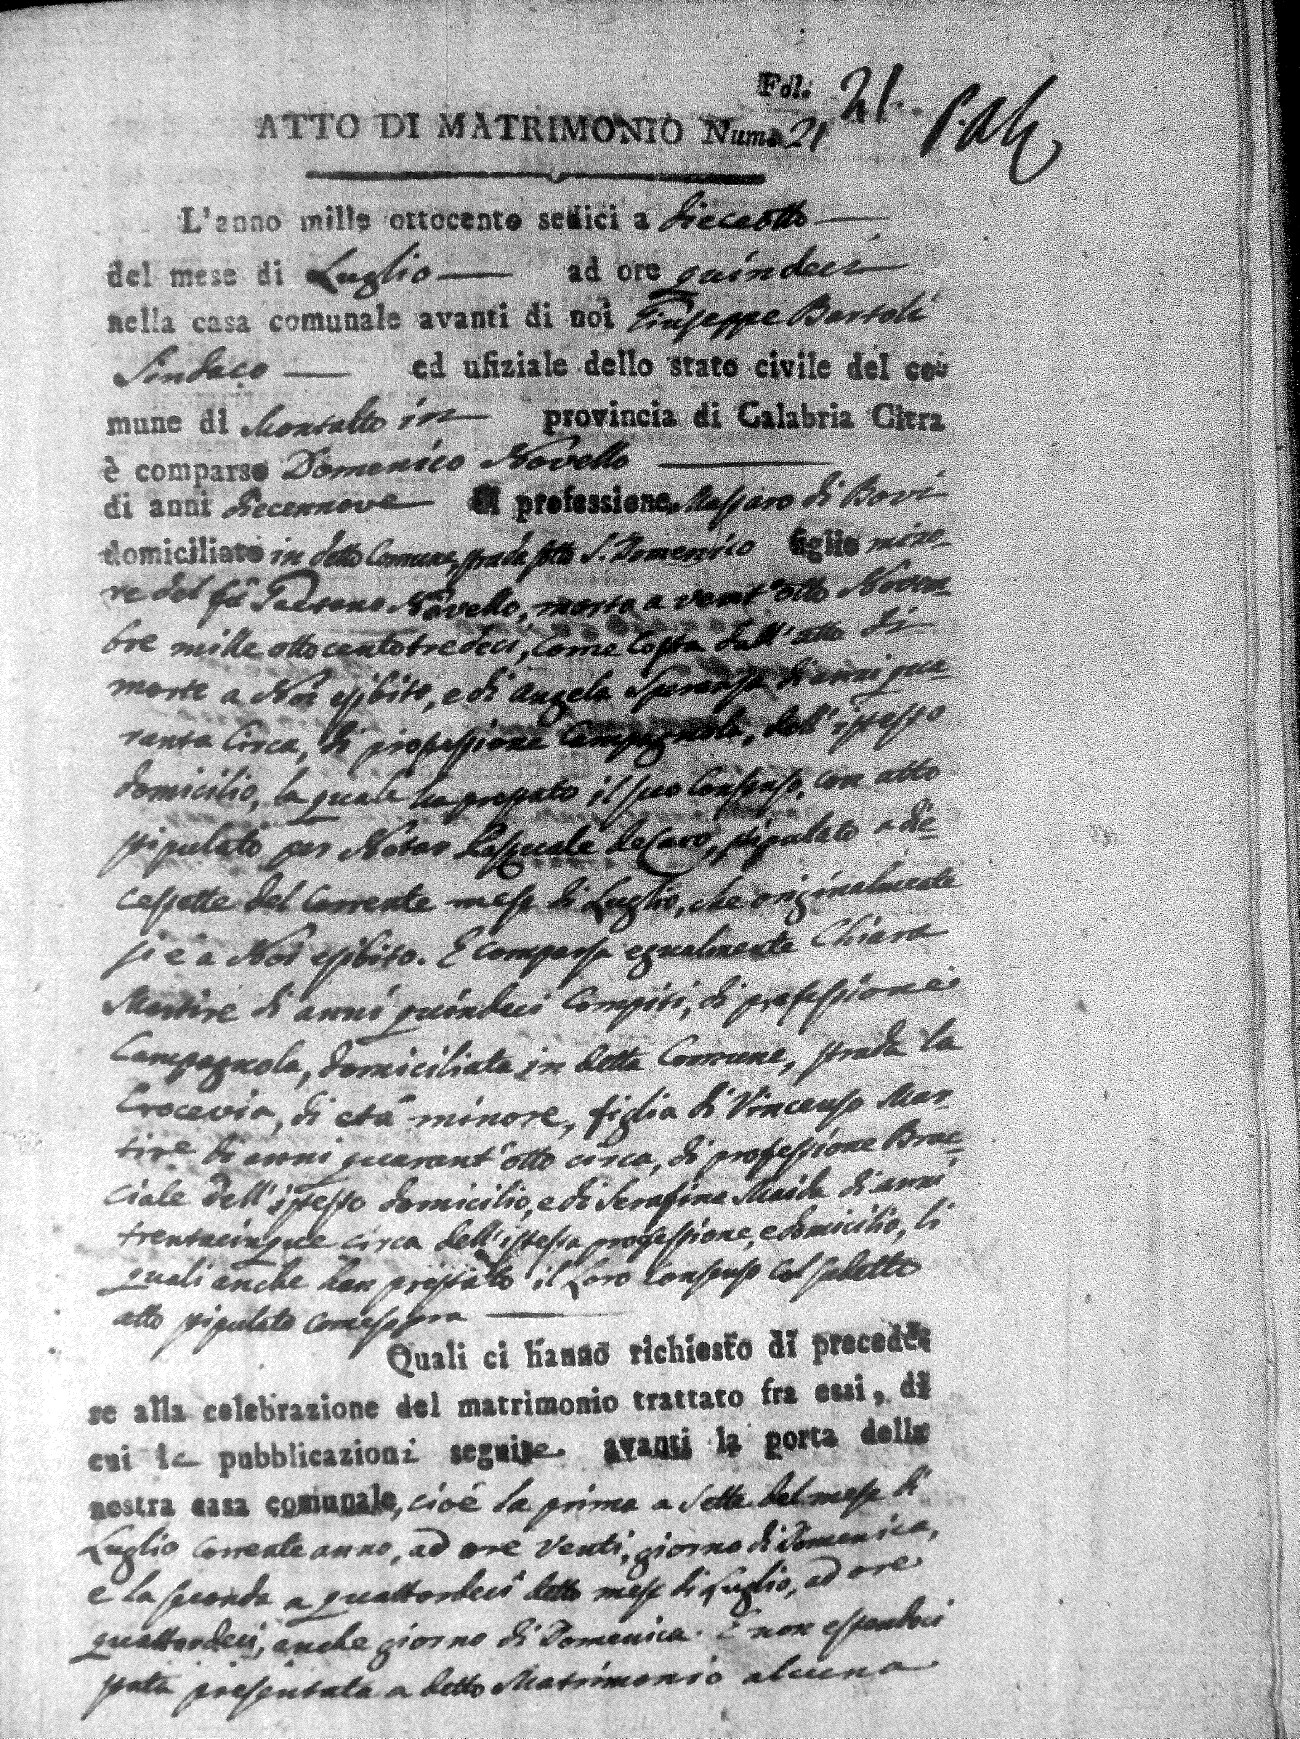 Fol. 21.
ATTO DI MATRIMONIO Num. 21
L'anno mille ottocento sedici a dieceotto
del mese di Luglio ad ore quindeci
nella casa comunale avanti di noi Giuseppe Bartoli
Sindaco ed ufiziale dello stato civile del co-
mune di Montalto in provincia di Calabria Citra
è comparso Domenico Novello
di anni diecennove di professione Massaro di Bovi
domiciliato in detto Comune, strada detta S. Domenico figlio mino-
re del fù Gaetano Novello, morto a vent'otto Novem-
bre mille ottocentotredeci, come costa dall'atto di
morte a Noi esibito, e di Angela Speranza di anni qua-
ranta circa, di professione Campagnola, dell'istesso
domicilio, la quale ha prestato il suo Consenso, con atto
stipulato per Notar Pasquale de Caro, stipulato a die-
cessette del corrente mese di Luglio, che originalmente
si è a Noi esibito. È comparsa egualmente Chiara
Martire di anni quindeci compiti, di professione
Campagnola, domiciliata in detta Comune, strada la
Crocevia, di età minore, figlia di Vincenzo Mar-
tire di anni quarant'otto circa, di professione Brac-
ciale dell'istesso domicilio, e di Serafina Maida di anni
trentacinque circa dell'istessa professione, e domicilio, li
quali anche han prestato il loro consenso col sudetto
atto stipulato come sopra
Quali ci hanno richiesto di procede-
re alla celebrazione del matrimonio trattato fra essi, di
cui le pubblicazioni seguite avanti la porta della
nostra casa comunale, cioè la prima a sette del mese di
Luglio corrente anno, ad ore venti, giorno di Domenica,
e la seconda a quattordeci detto mese di Luglio, ad ore
quattordeci, anche giorno di Domenica. E non essendoci
stata presentata a detto Matrimonio alcuna